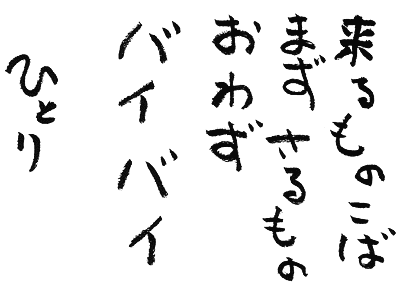 来るものこばまず
さるもの
おわず
バイバイ
ひとり